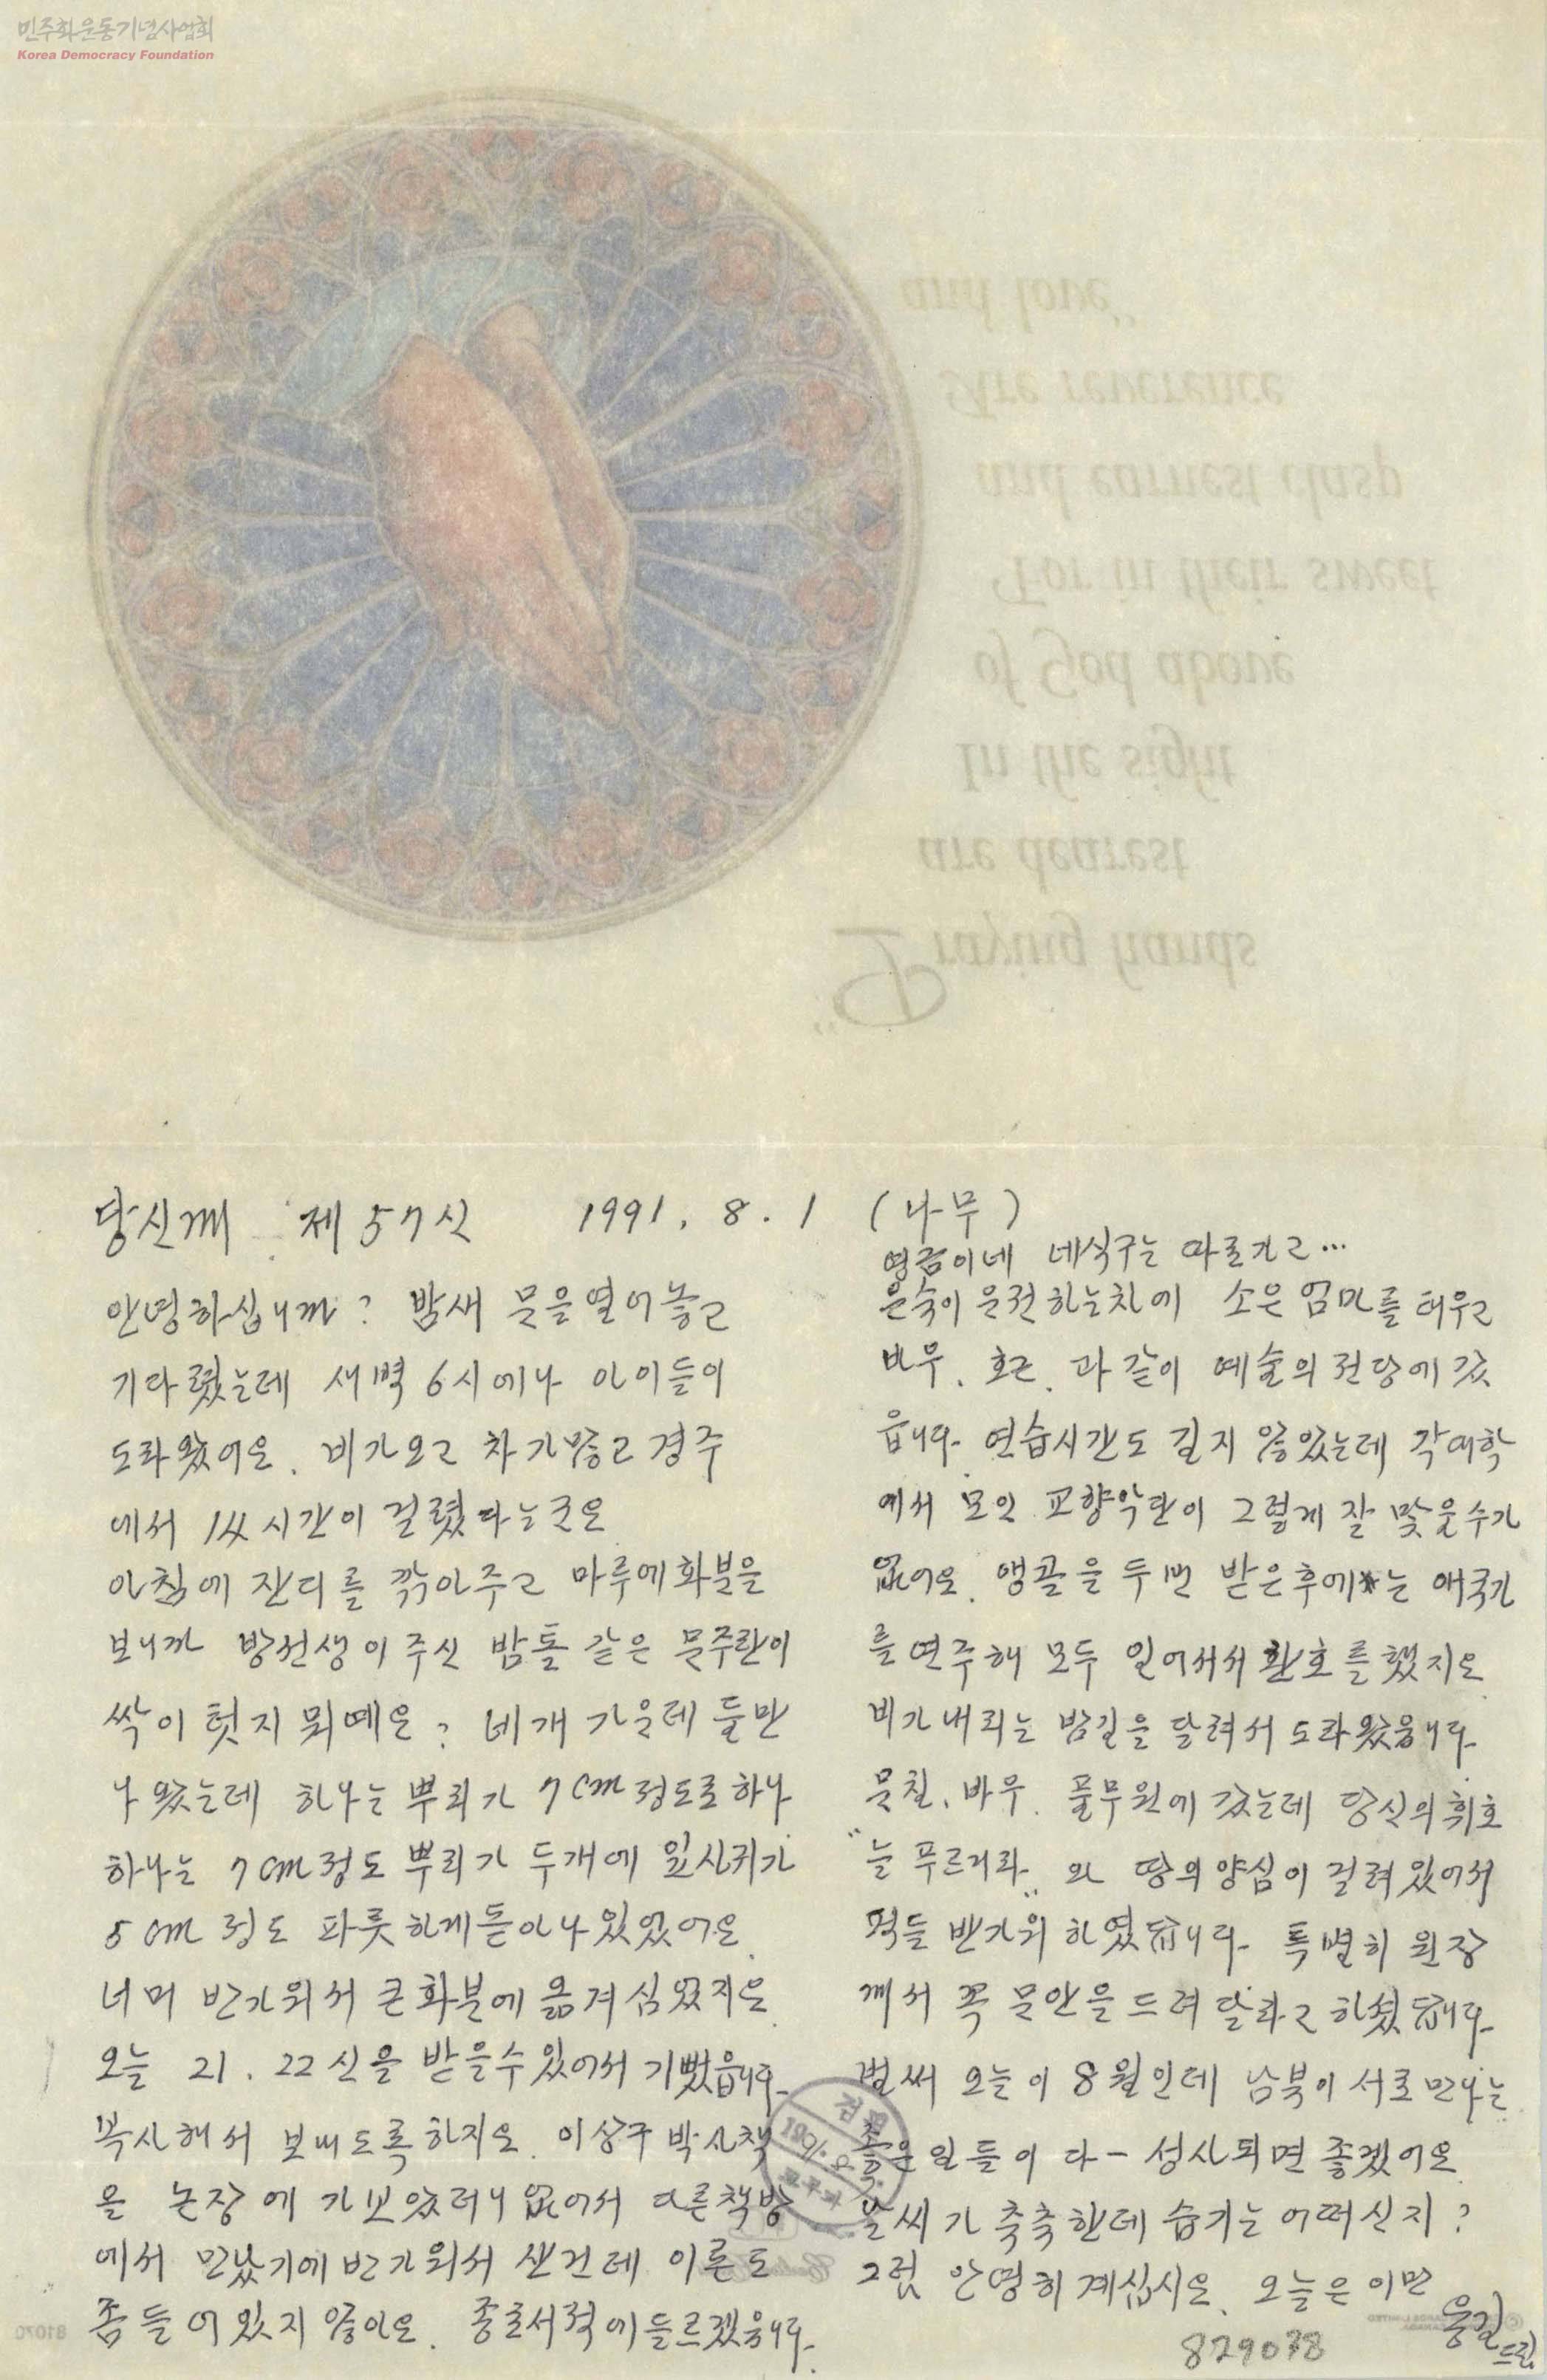 민주화운동기념사업회
Korea Democracy Foundation
and love"
Are reverence
and earnest clasp
For in their sweet
of God above
In the sight
are dearest
"Praying hands
당신께 제57신 1991. 8. 1 (나무)
안녕하십니까? 밤새 문을 열어놓고
기다렸는데 새벽 6시에나 아이들이
도라왔어요. 비가오고 차가많고 경주
에서 14시간이 걸렸다는군요
아침에 잔디를 깎아주고 마루에화분을
보니까 방선생이 주신 밤톨 같은 문주란이
싹이 텃지 뭐예요? 네개 가운데 둘만
나왔는데 하나는 뿌리가 7cm정도로 하나
하나는 7cm정도 뿌리가 두개에 잎사귀가
5cm 정도 파릇하게돋아나있었어요.
너머 반가워서 큰화분에 옮겨심었지요.
오늘 21. 22신을 받을수있어서 기뻤읍니다.
복사해서 보내도록하지요. 이상구 박사책
을 논장에 가보았더니 없어서 다른책방
에서 만났기에 반가워서 산건데 이론도
좀들어있지 않아요. 종로서적에들르겠읍니다.
영금이네 네식구는 따로가고…
은숙이 운전하는차에 소은 엄마를 태우고
바우. 호근. 과같이 예술의 전당에갔
읍니다. 연습시간도 길지 않았는데 각대학
에서 모인 교향악단이 그렇게 잘 맞을수가
없어요. 앵콜을 두번 받은후에는 애국가
를연주해 모두 일어서서 환호를했지요
비가내리는 밤길을 달려서 도라왔읍니다.
문칠. 바우. 풀무원에 갔는데 당신의휘호
"늘 푸르거라"와 땅의양심이 걸려있어서
퍽들 반가워 하였답니다. 특별히 원장
께서 꼭 문안을 드려달라고하셨답니다.
벌써 오늘이 8월인데 남북이 서로만나는
좋은일들이 다- 성사되면 좋겠어요
날씨가 축축한데 습기는 어떠신지?
그럼 안녕히계십시요. 오늘은 이만
용길
드림
1991. 8.
829078
81070